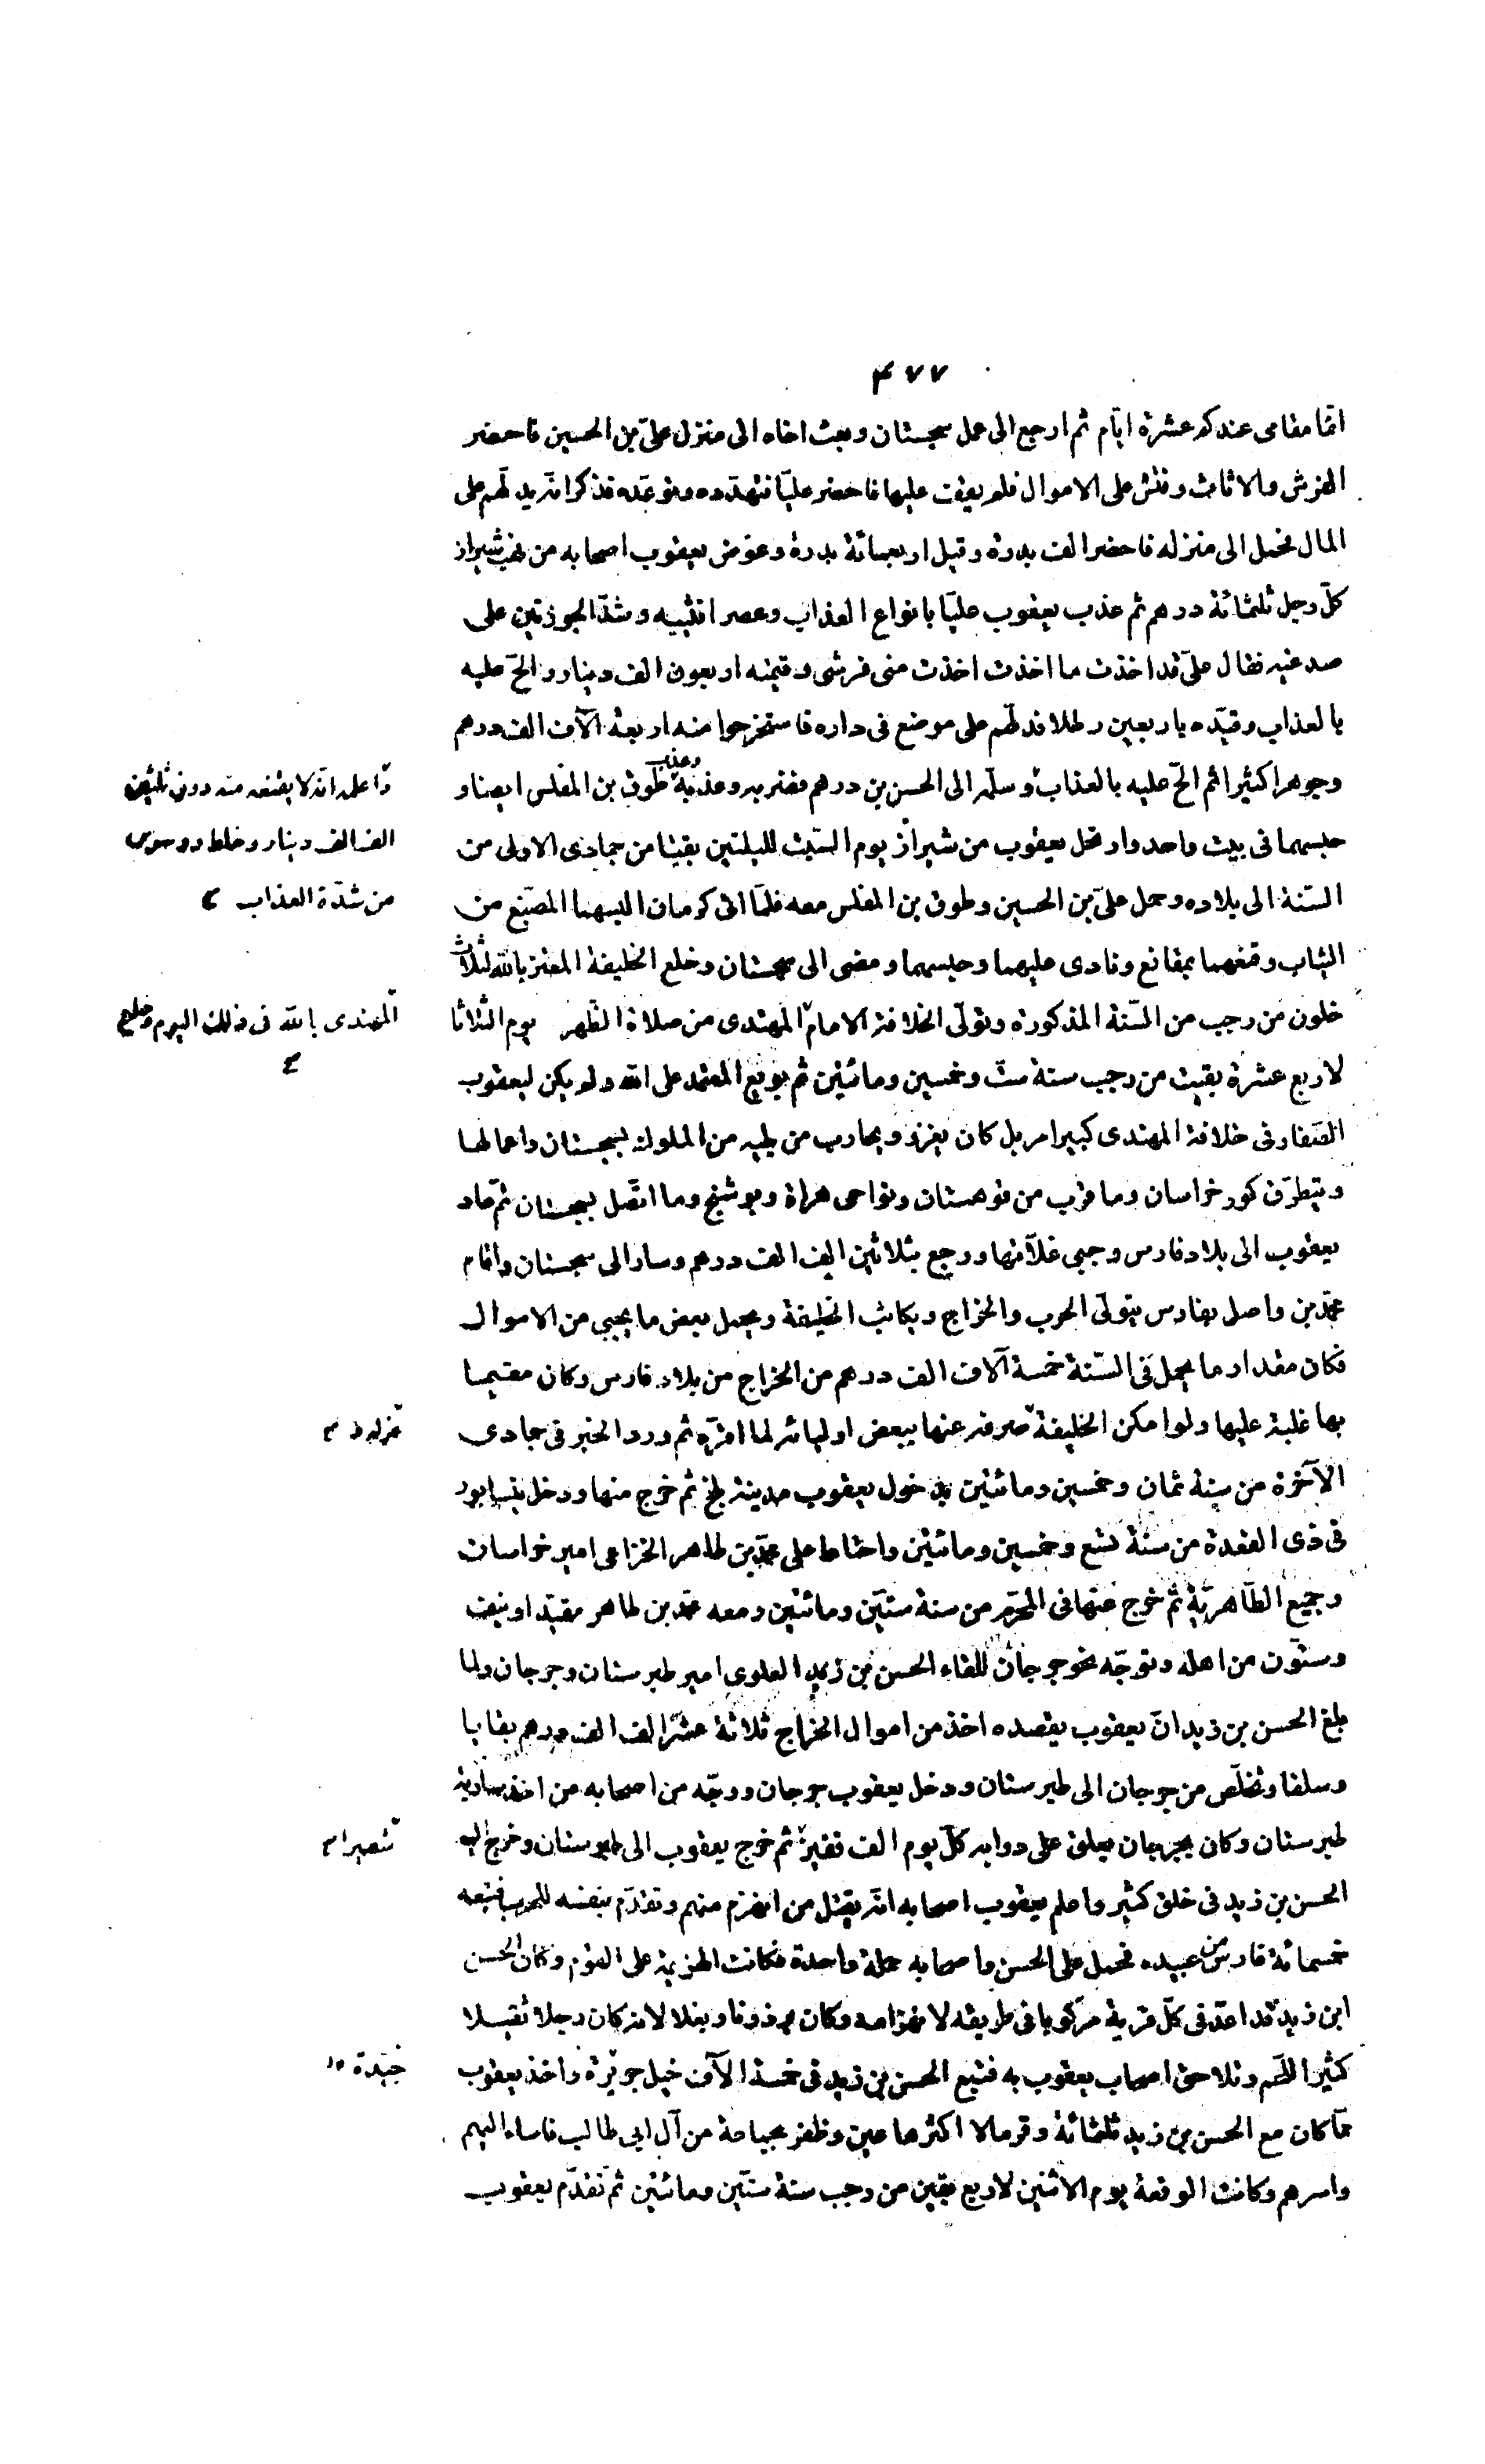 ۴۷۷
انما مقامى عندكم عشرة ايّام ثم ارجع الى عمل سجستان وبعث اخاه الى منزل علىّ بن الحسين فاحضر
الفرش والاثاث وفتش على الاموال فلم يقف عليها فاحضر عليّا فتهدّده وتوعّده فذكر انّه يدلّهم على
المال فحمل الى منزله فاحضر الف بدرة وقيل اربعمائة بدرة وعوّض يعقوب اصحابه من نهب شيراز
كلّ رجل ثلثمائة درهم ثم عذب يعقوب عليّا بانواع العذاب وعصر انثييه وشدّ الجوزتين على
صدغيه فقال علىّ قد اخذت ما اخذت اخذت منى فرشى وقيمته اربعون الف دينار والحّ عليه
بالعذاب وقيّده باربعين رطلا فدلّهم على موضع فى داره فاستخرجوا منه اربعة الآف الف درهم
وجوهرا كثيرا ثم الحّ عليه بالعذاب وسلّمه الى الحسن بن درهم فضربه وعذبه وعذب طوق بن المغلس ايضا و
وّا علمه انّه لا يقنعه منه دون ثلثين
حبسهما فى بيت واحد وارتحل يعقوب من شيراز يوم السّبت لليلتين بقيتا من جمادى الاولى من
الف الف دينار وخلط ووسوس
السّنة الى بلاده وحمل علىّ بن الحسين وطوق بن المغلس معه فلمّا اتى كرمان البسهما المصبّغ من
من شدّة العذاب
الثياب وقنعهما بمقانع ونادى عليهما وحبسهما ومضى الى سجستان وخلع الخليفة المعتز بالله لثلاث
خلون من رجب من السّنة المذكورة وتولّى الخلافة الامام المهتدى من صلاة الظهر يوم الثلاثا
المهتدى بالله فى ذلك اليوم وخلع
لاربع عشرة بقيت من رجب سنة ستّ وخمسين ومائتين ثم بويع المعتمد على الله ولم يكن ليعقوب
الصّفار فى خلافة المهتدى كبير امر بل كان يغزو ويحارب من يليه من الملوك بسجستان واعمالها
ويتطرّف كور خراسان وما قرب من قوهستان ونواحى هراة وبوشنج وما اتّصل بسجستان ثمّ عاد
يعقوب الى بلاد فارس وجبى غلّاتها ورجع بثلاثين الف الف درهم وسار الى سجستان واقام
محمّد بن واصل بفارس يتولّى الحرب والخراج ويكاتب الخليفة ويحمل بعض ما يجبى من الاموال
فكان مقدار ما يحمل فى السّنة خمسة آلاف الف درهم من الخراج من بلاد فارس وكان مقيما
بها غلبة عليها ولو امكن الخليفة صرفه عنها ببعض اوليائه لما اقرّه ثم ورد الخبر فى جمادى
الآخرة من سنة ثمان وخمسين ومائتين بدخول يعقوب مدينة بلخ ثم خرج منها ودخل نيسابور
فى ذى القعدة من سنة تسع وخمسين ومائتين واحتاط على محمّد بن طاهر الخزاعى امير خراسان
وجميع الطّاهريّة ثم خرج عنها فى المحرّم من سنة ستّين ومائتين ومعه محمّد بن طاهر مقيّدا ونيف
وستّون من اهله وتوجّه نحو جرجان للقاء الحسن بن زيد العلوى امير طبرستان وجرجان ولما
بلغ الحسن بن زيد انّ يعقوب يقصده اخذ من اموال الخراج ثلاثة عشر الف الف درهم بقايا
وسلفا وتخلّص من جرجان الى طبرستان ودخل يعقوب جرجان ووجّه من اصحابه من اخذ سارية
طبرستان وكان بجرجان يعلق على دوابه كلّ يوم الف قفيز ثم خرج يعقوب الى طبرستان وخرج اليه
شعيرا
الحسن بن زيد فى خلق كثير واعلم يعقوب اصحابه انّه يقتل من انهزم منهم وتقدّم بنفسه للحرب فتبعه
خمسمائة فارس من عبيده فحمل على الحسن واصحابه حملة واحدة فكانت الهزيمة على القوم وكان الحسن
ابن زيد قد اعدّ فى كلّ قرية مركوبا فى طريقه لانهزامه وكان برذونا وبغلا لانه كان رجلا ثقيلا
كثير اللحم وتلاحق اصحاب يعقوب به فتبع الحسن بن زيد فى خمسة الآف خيل جريزة واخذ يعقوب
ممّا كان مع الحسن بن زيد ثلثمائة وقر مالا اكثرها عين وظفر بجماعة من آل ابى طالب فاساء اليهم
واسرهم وكانت الوقعة يوم الاثنين لاربع بقين من رجب سنة ستّين ومائتين ثم تقدّم يعقوب